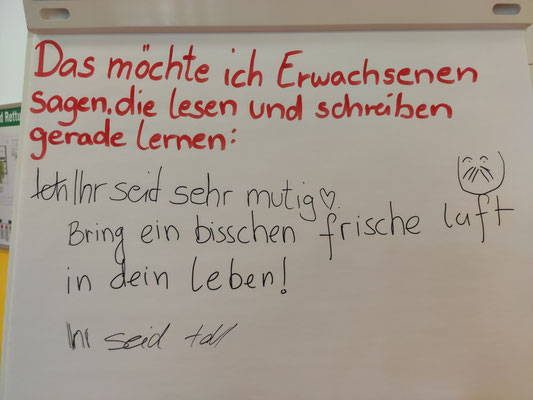 Das möchte ich Erwachsenen
sagen, die lesen und schreiben
gerade lernen:
Ihr seid sehr mutig♡.
Bring ein bisschen frische luft
in dein leben!
Ihr seid toll
d Rettu